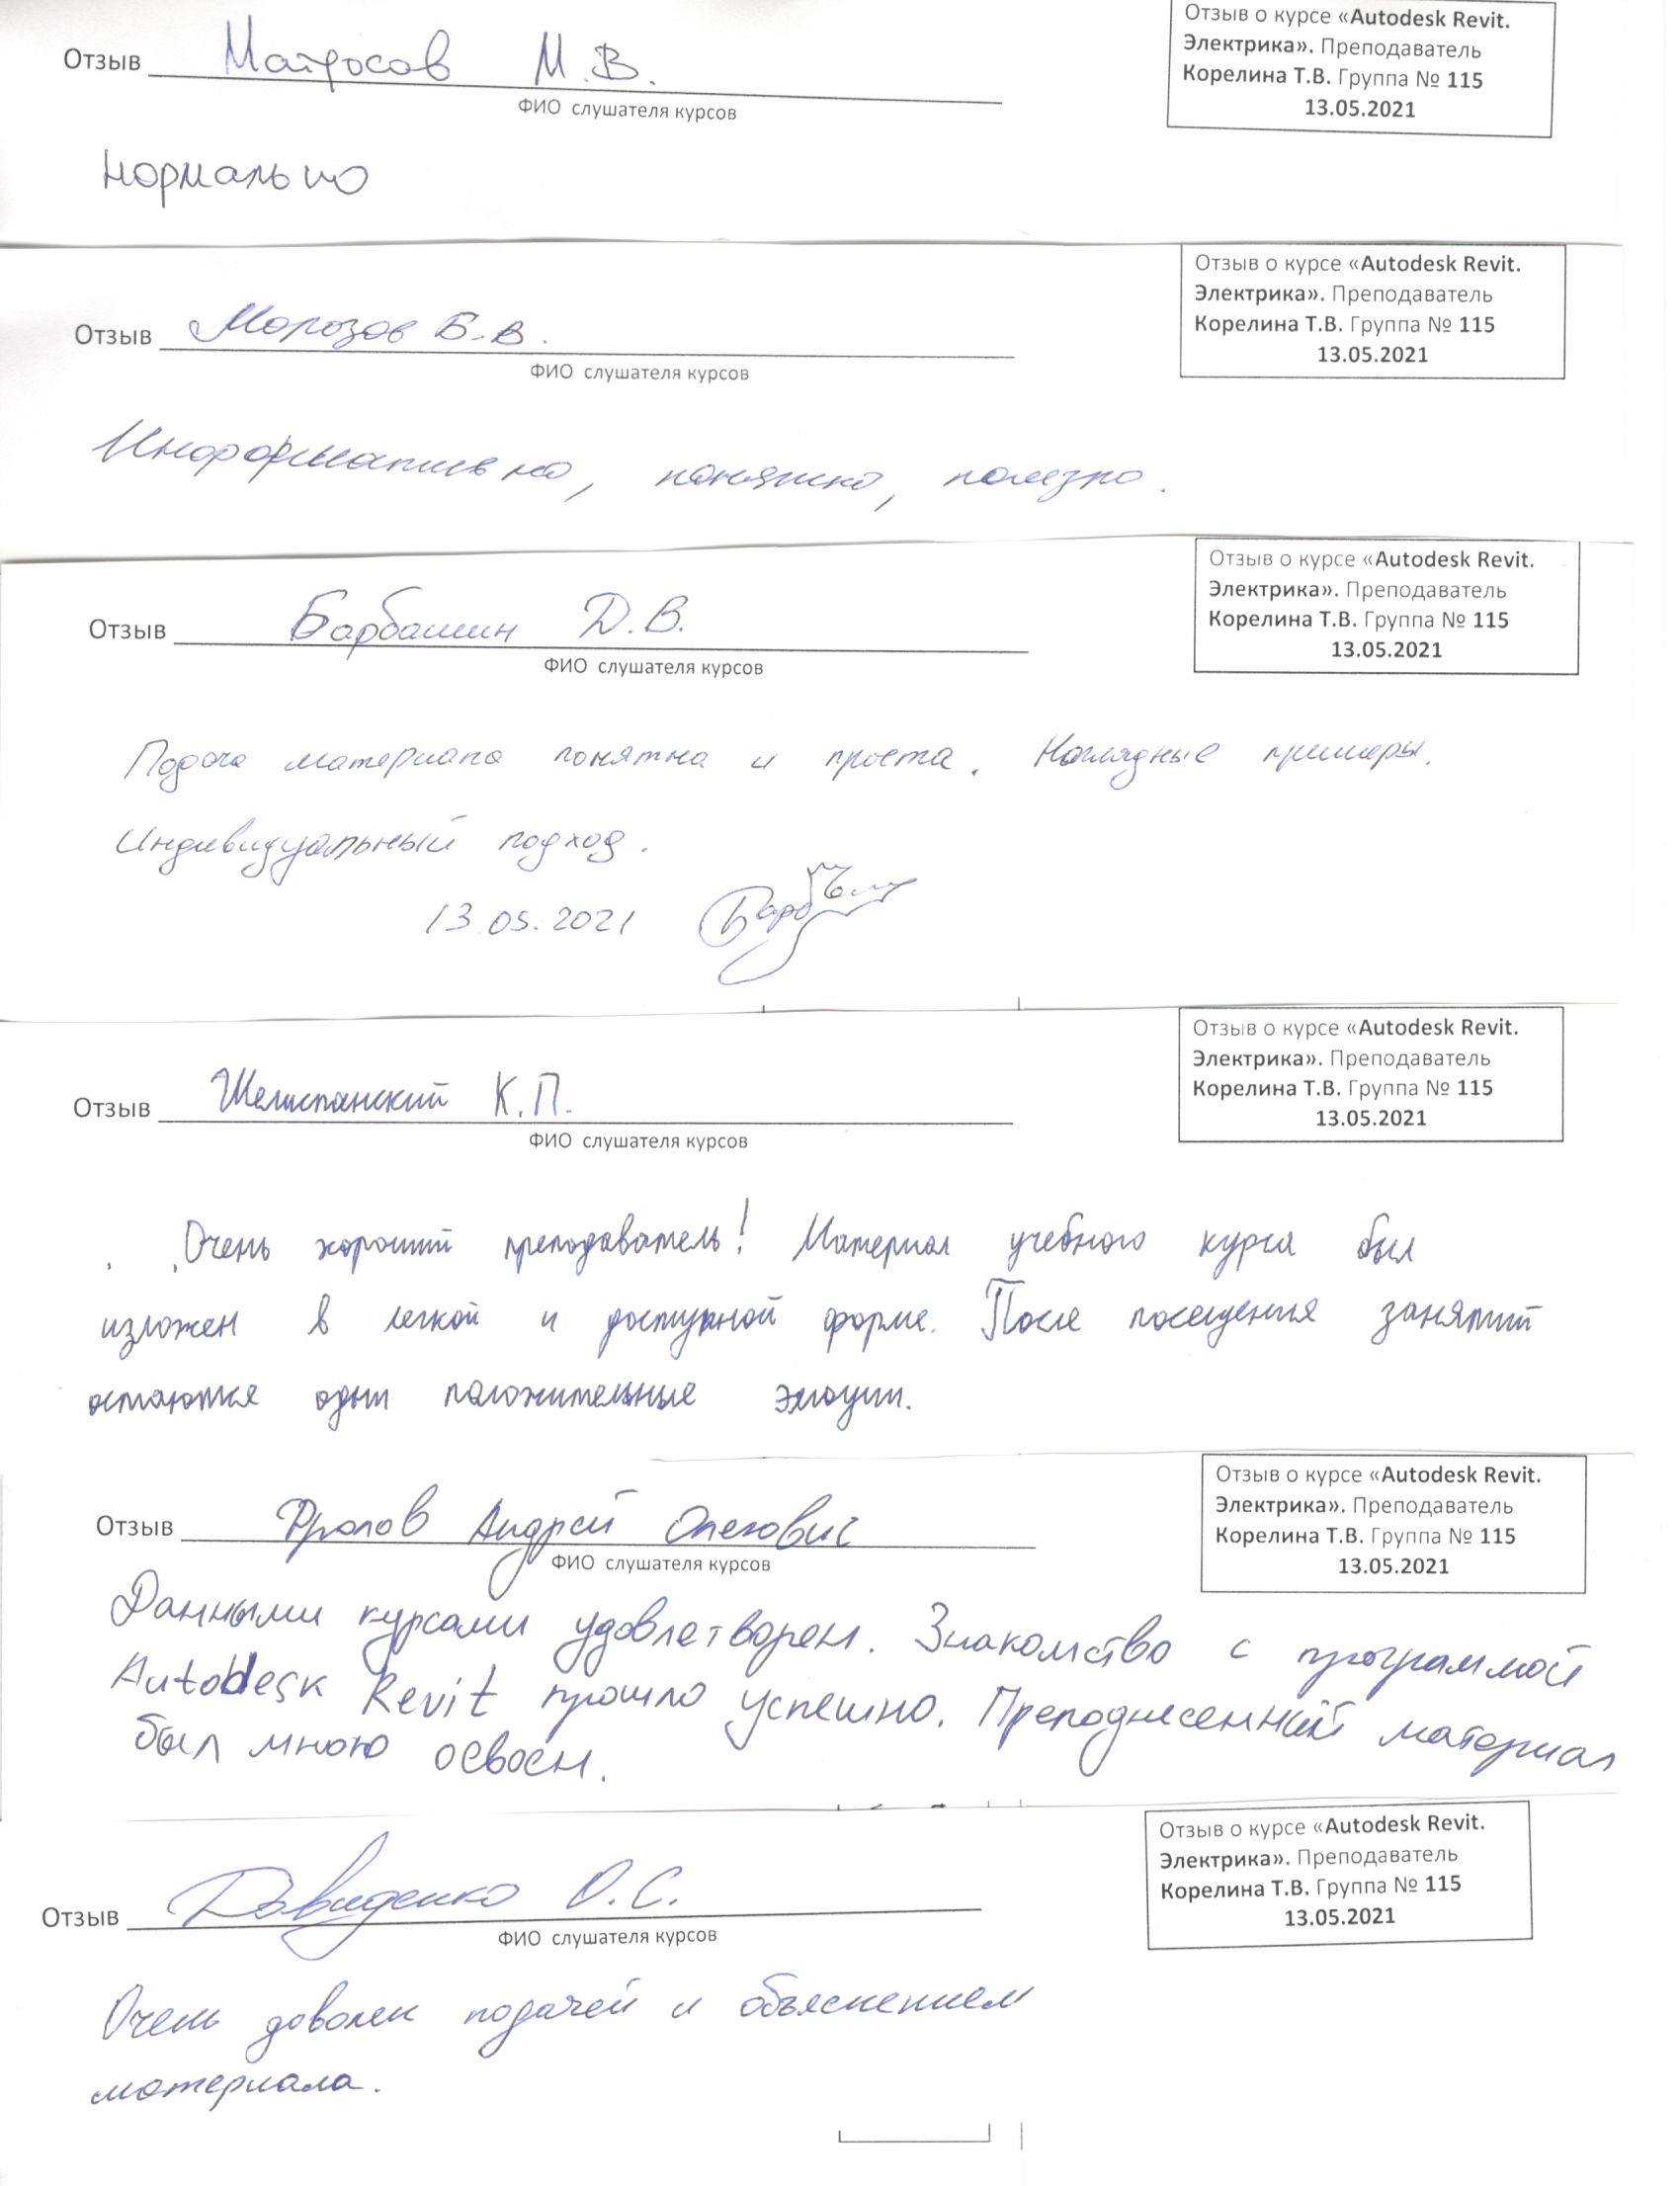 Отзыв о курсе «Autodesk Revit.
Электрика». Преподаватель
Корелина Т.В. Группа № 115
13.05.2021
Отзыв Матросов М.В.
ФИО слушателя курсов
Нормально
Отзыв о курсе «Autodesk Revit.
Электрика». Преподаватель
Корелина Т.В. Группа № 115
13.05.2021
Отзыв Морозов Б.В.
ФИО слушателя курсов
Информативно, понятно, полезно.
Отзыв о курсе «Autodesk Revit.
Электрика». Преподаватель
Корелина Т.В. Группа № 115
13.05.2021
Отзыв Барбашин Д.В.
ФИО слушателя курсов
Подача материала понятна и проста. Наглядные примеры.
Индивидуальный подход.
13.05.2021
Отзыв о курсе «Autodesk Revit.
Электрика». Преподаватель
Корелина Т.В. Группа № 115
13.05.2021
Отзыв К.П.
ФИО слушателя курсов
Очень хороший преподаватель! Материал учебного курса был
изложен в легкой и доступной форме. После посещения занятий
остаются одни положительные эмоции.
Отзыв о курсе «Autodesk Revit.
Электрика». Преподаватель
Корелина Т.В. Группа № 115
13.05.2021
Отзыв Фролов Андрей Олегович
ФИО слушателя курсов
Данными курсами удовлетворен. Знакомство с программой
Autodesk Revit прошло успешно. Преподнесенный материал
был мною освоен.
Отзыв о курсе «Autodesk Revit.
Электрика». Преподаватель
Корелина Т.В. Группа № 115
13.05.2021
Отзыв Давиденко О.С.
ФИО слушателя курсов
Очень доволен подачей и объяснением
материала.